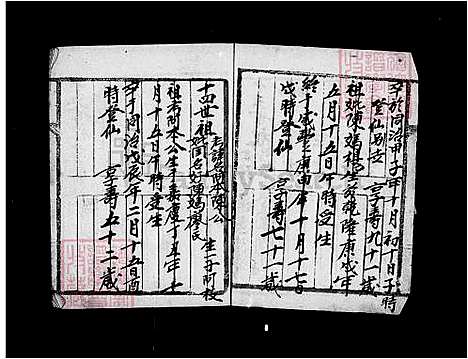 卒於同治甲子年十月初十日子時
登仙別世 享壽九十一歲
祖妣陳媽祖生於乾隆庚戌年
五月十五日午時受生
終于咸豐庚申年十月十七日
戌時登仙 享壽七十一歲
十四世祖考諱阿本陳公
妣閨名好陳媽廖氏 生一子阿枝
祖考阿本公生于嘉慶丁丑年十
月十五日午時建生
卒于同治戊辰年二月十五日酉
時登仙 享壽五十二歲